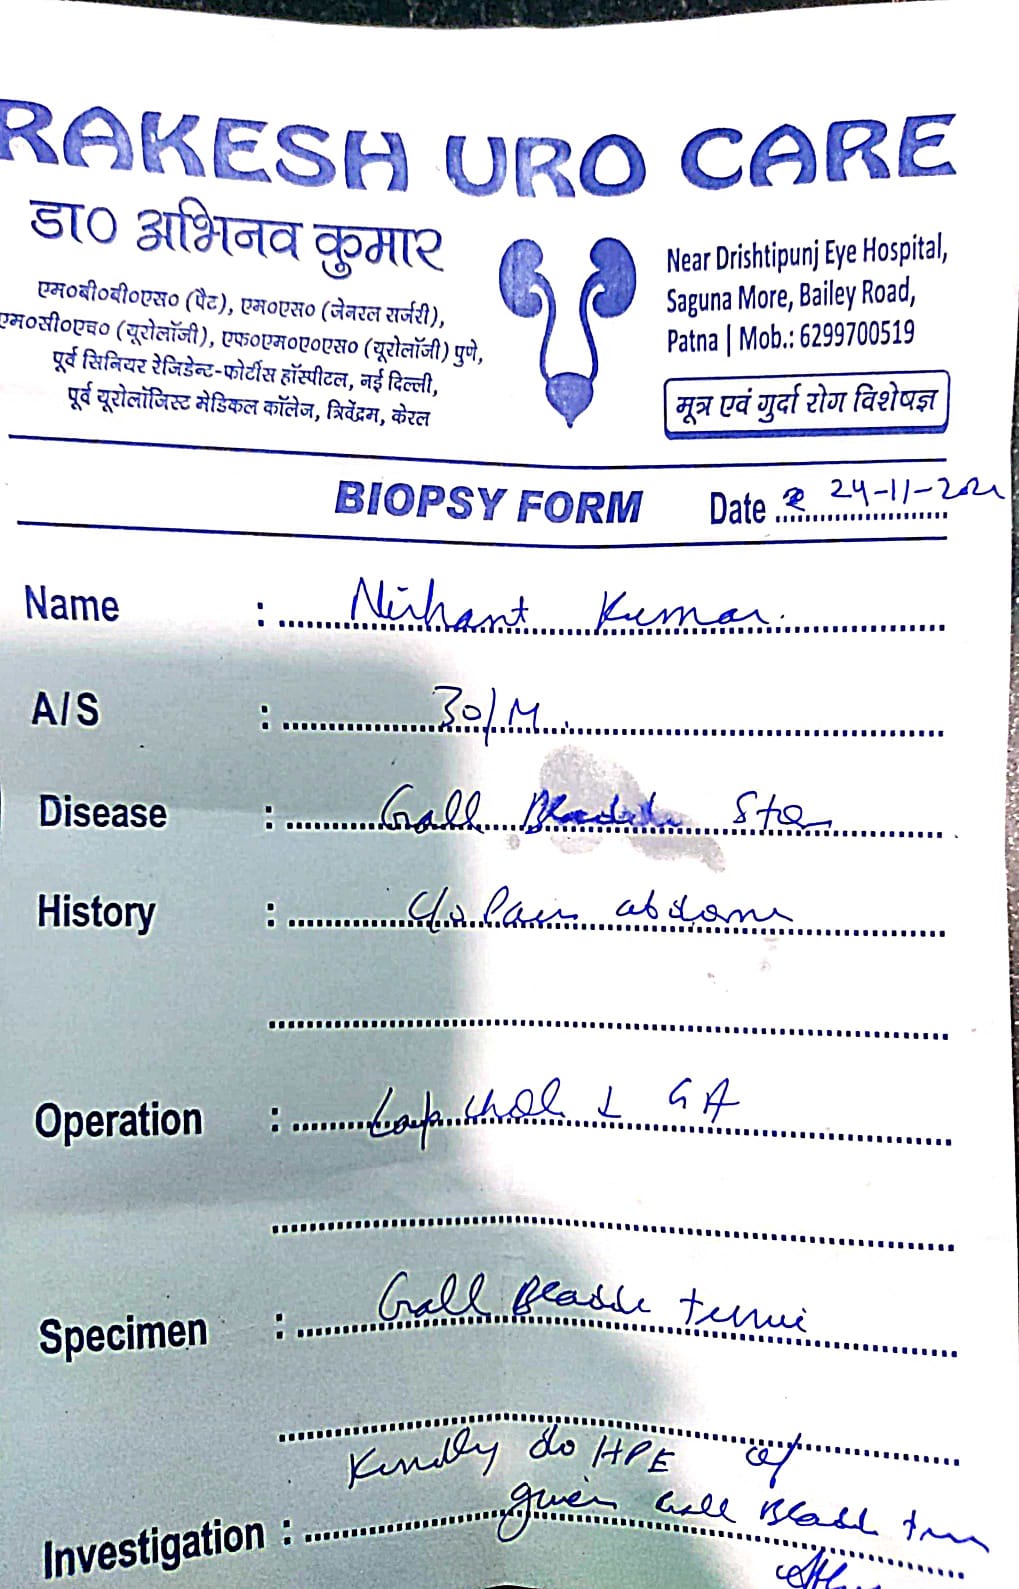 RAKESH URO CARE
डा० अभिनव कुमार
एम०बी०बी०एस० (पैट), एम०एस० (जेनरल सर्जरी),
एम०सी०एच० (यूरोलॉजी), एफ०एम०ए०एस० (यूरोलॉजी) पुणे,
पूर्व सिनियर रेजिडेन्ट-फोर्टीस हॉस्पीटल, नई दिल्ली,
पूर्व यूरोलॉजिस्ट मेडिकल कॉलेज, त्रिवेंद्रम, केरल
Near Drishtipunj Eye Hospital,
Saguna More, Bailey Road,
Patna | Mob.: 6299700519
मूत्र एवं गुर्दा रोग विशेषज्ञ
BIOPSY FORM Date 24-11-202
Name : Nishant Kumar
A/S : 30/M
Disease : Gall Bladder
History : C/o Pain abdome
Operation : Lap chol GA
Specimen : Gall Bladde
Kindly do HPE of
Investigation : given Gall Bladd